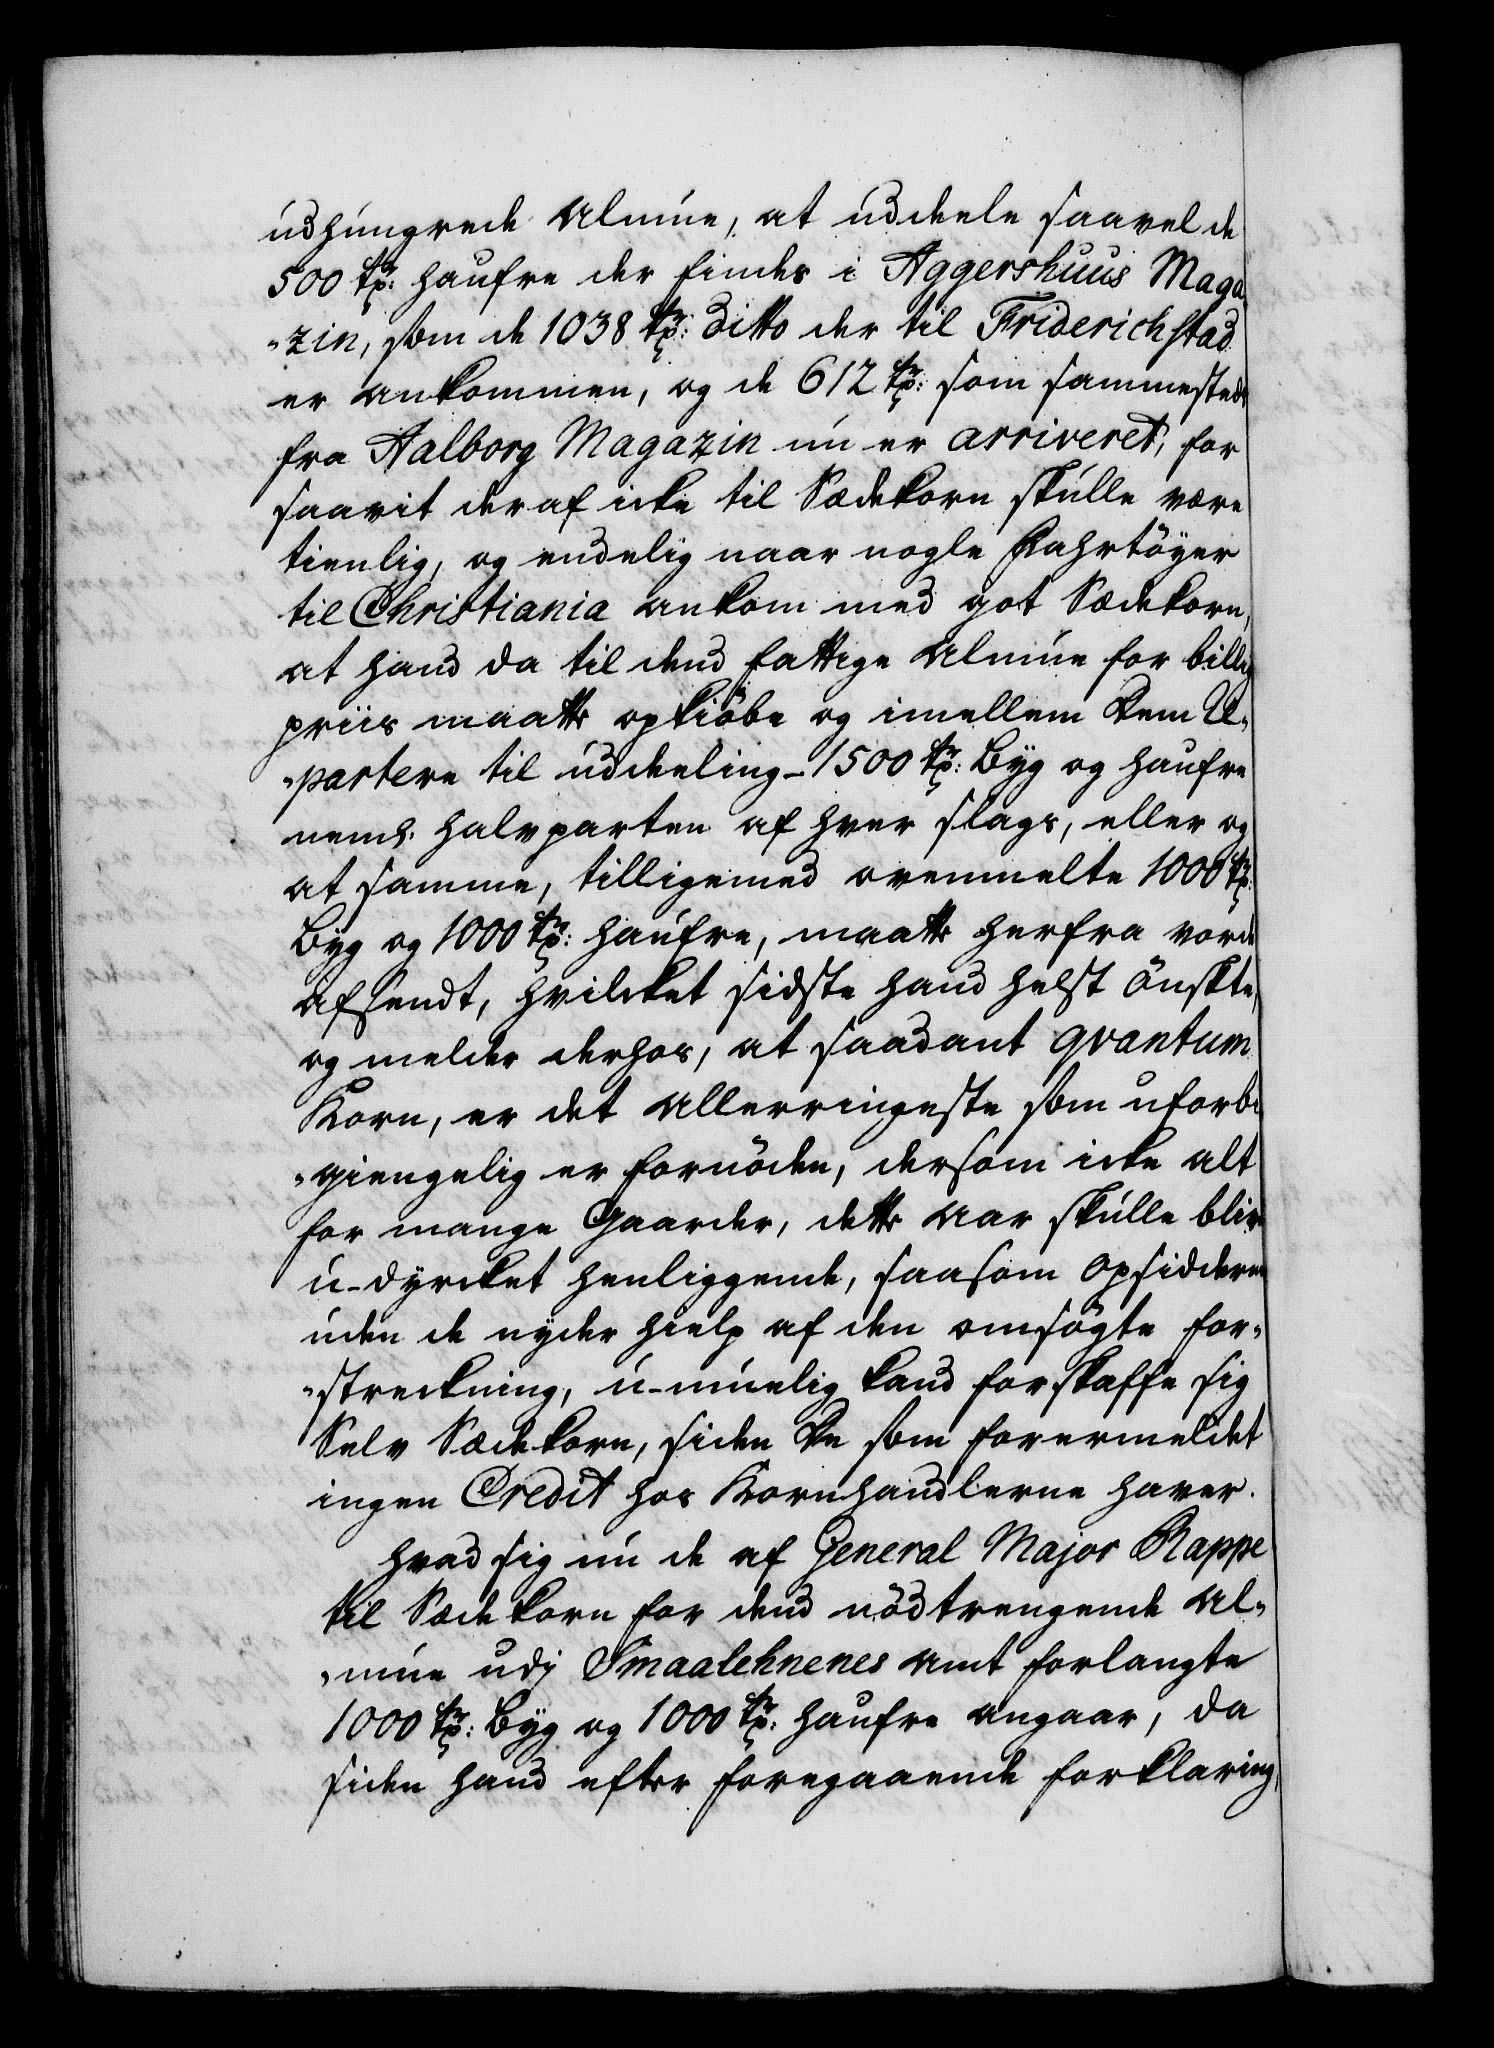 udhungrede Almue, at uddeele saavel de
500 Tr: Haufre der findes i Aggershuus Maga
-zin, som de 1038 Tr: Ditto der til Friderichstad
er ankommen, og de 612 Tr: som sammesteds
fra Aalborg Magazin nu er arriveret, for
saavit deraf icke til Sædekorn skulle være
tienlig, og endelig naar nogle Fahrtöyer
til Christiania ankom med got Sædekorn,
at hand da til dend fattige Almue for billig
priis maatte opkiöbe og imellem Dem Re-
-partere til uddeeling - 1500 Tr: Byg og Haufre
neml: halvparten af hver slags, eller og
at samme, tilligemed ovenmelte 1000 Tr:
Byg og 1000 Tr: Haufre, maatte herfra vorde
afsendt, hvilcket sidste hand helst önskte,
og melder derhos, at saadant qvantum
Korn, er det allerringeste som uforbi
-giengelig er fornöden, dersom icke alt
for mange Gaarder, dette Aar skulle blive
u-dyrcket henliggende, saasom Opsidderne
uden de nyder hielp af den omsögte for-
-streckning, u-muelig kand forskaffe sig
Selv Sædekorn, siden De som forermeldet
ingen Credit hos Kornhandlerne haver.
Hvad sig nu de af General Major Rappe
til Sædekorn for dend nödtrengende Al-
-mue udj Smaalehnenes Amt forlangte
1000 Tr: Byg og 1000 Tr: Haufre angaar, da
siden hand efter foregaaende forklaring,